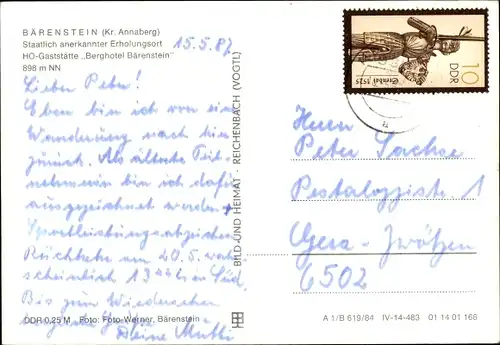 BÄRENSTEIN (Kr. Annaberg)
Staatlich anerkannter Erholungsort
HO-Gaststätte „Berghotel Bärenstein"
898 m NN
15.5.87
Lieber Peter!
Eben bin ich von einer
Wanderung nach hier
zurück. Als älteste Teil-
nehmerin bin ich dafür
ausgezeichnet worden
Sportleistungsabzeichen
Rückkehr am 20.5. wahr-
scheinlich 13 44 h in Süd.
Bis zum Wiedersehen
Deine Mutti
DDR 0,25 M Foto: Foto-Werner, Bärenstein
BILD UND HEIMAT · REICHENBACH (VOGTL)
10
DDR
1525
Herrn
Peter Sachse
Pestalozzistr. 1
Gera-Zwötzen
6502
A 1/B 619/84 IV-14-483 01 14 01 166